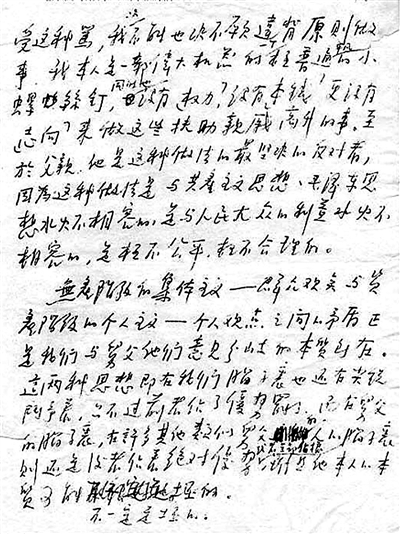 受这种骂，我不能也决不愿违背原则做
事，我本人是一部伟大机器的极普通的小
螺丝钉，同时也没有"权力"，没有"本钱"，更没有
"志向"来做这些扶助亲戚高升的事。至
於父亲，他是这种做法的最坚决的反对者，
因为这种做法是与共产主义思想、毛泽东思
想水火不相容的，是与人民大众的利益水火不
相容的，是极不公平、极不合理的。
无产阶级的集体主义——群众观点与资
产阶级的个人主义——个人观点之间的矛盾正
是我们与舅父他们意见分歧的本质所在。
这两种思想即在我们脑子里也还有尖锐
斗争着，只不过前者占了优势罢了，而在舅父
的脑子里，在许多其他类似舅父的人的脑子里
则还是后者占着绝对优势
不一定是坏的。